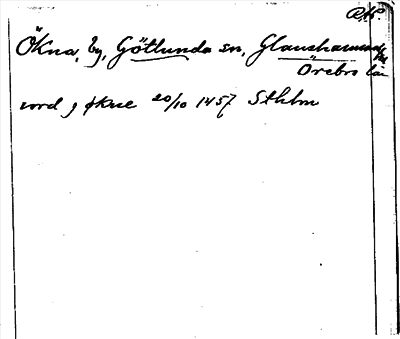 RAp.
Ökna, by, Götlunda sn, Glanshammars hd
Örebro län
iord j økne 20/10 1457 Sthlm